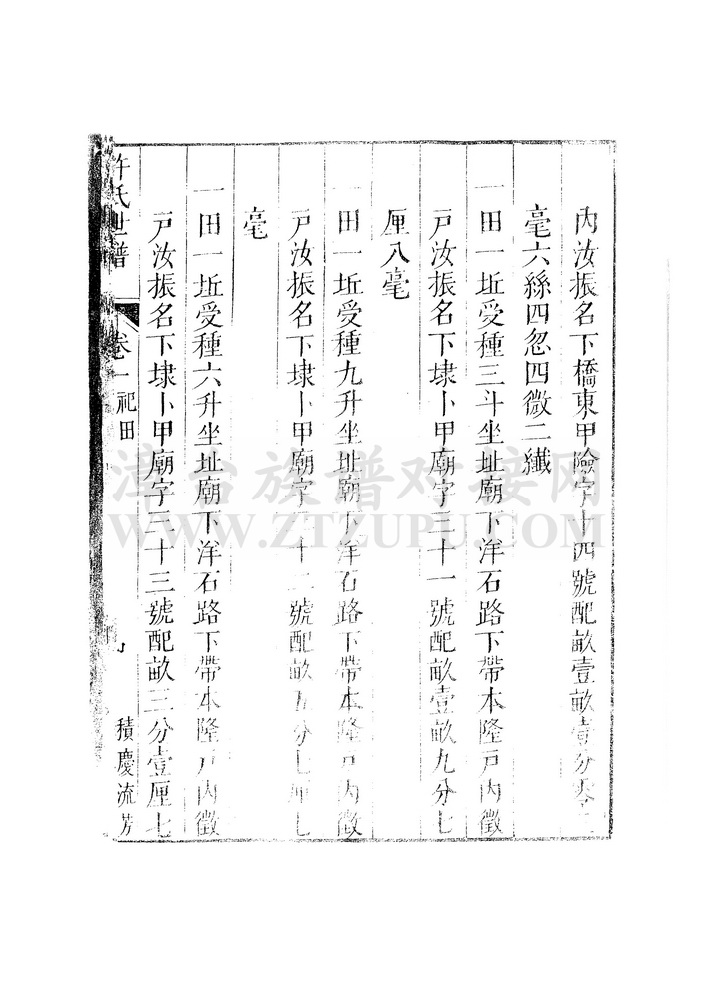 內汝振名下橋東甲險字十四號配畝壹畝壹分零二
毫六絲四忽四微二纖
一田一坵受種三斗坐址廟下洋石路下帶本隆戸內徵
戸汝振名下埭卜甲廟字三十一號配畝壹畝九分七
厘八毫
一田一坵受種九升坐址廟下洋石路下帶本隆戸內徵
戸汝振名下埭卜甲廟字三十二號配畝五分七厘七
毫
一田一坵受種六升坐址廟下洋石路下帶本隆戸內徵
戸汝振名下埭卜甲廟字三十三號配畝三分壹厘七
許氏世譜
卷一 祀田
積慶流芳
漳台族谱对接网
WWW.ZTZUPU.COM